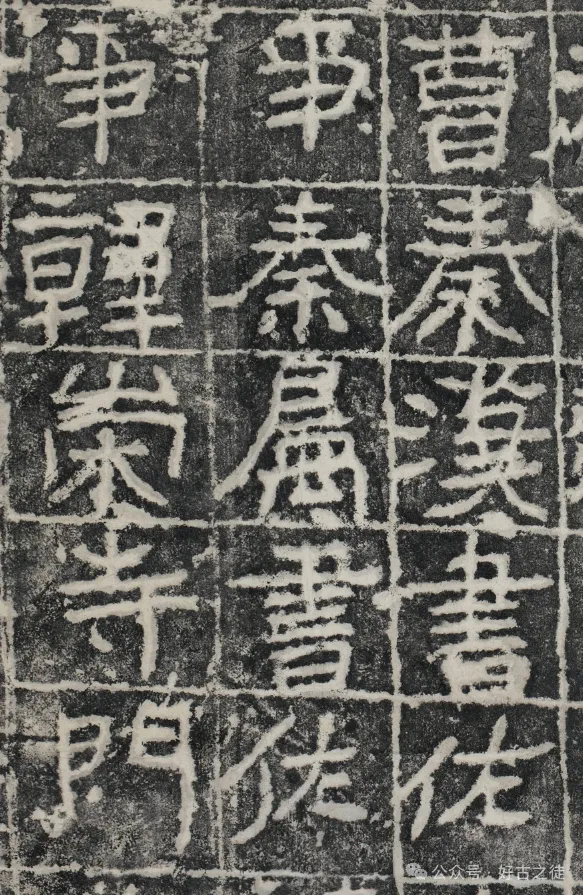 曹秦漢書佐
事秦屬書佐
事韓崇寺門
公众号·好古之徒